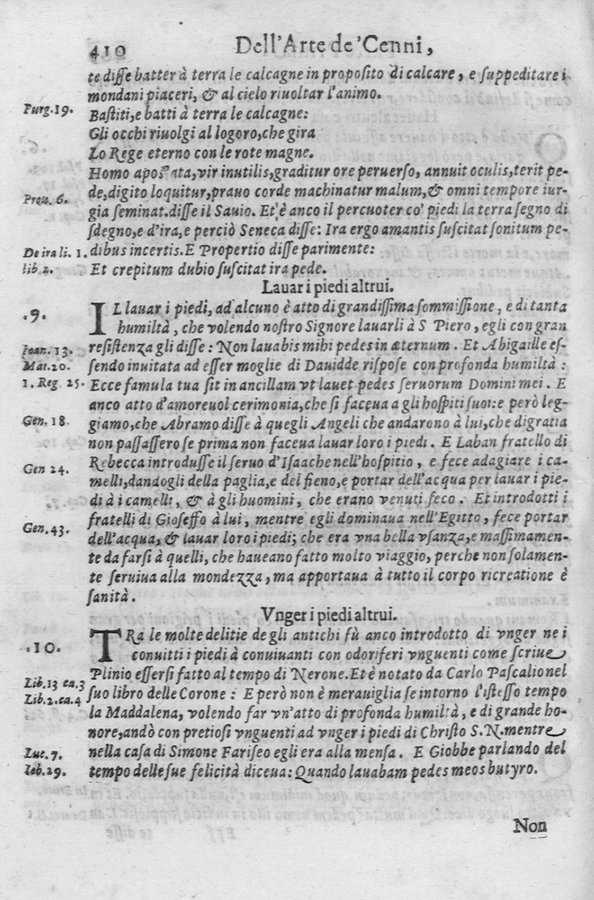 410 Dell'Arte de'Cenni,
te disse batter à terra le calcagne in proposito di calcare, e suppeditare i
mondani piaceri, & al cielo riuoltar l'animo.
Purg. 19. Bastiti, e batti à terra le calcagne:
Gli occhi riuolgi al logoro, che gira
Lo Rege eterno con le rote magne.
Homo apostata, vir inutilis, graditur ore peruerso, annuit oculis, terit pe-
Prou. 6. de, digito loquitur, prauo corde machinatur malum, & omni tempore iur-
gia seminat. disse il Sauio. Et è anco il percuoter co' piedi la terra segno di
sdegno, e d'ira, e perciò Seneca disse: Ira ergo amantis suscitat sonitum pe-
De ira li. 1. dibus incertis. E Propertio disse parimente:
lib 2. Et crepitum dubio suscitat ira pede.
Lauar i piedi altrui.
.9. IL lauar i piedi, ad alcuno è atto di grandissima sommissione, e di tanta
humiltà, che volendo nostro Signore lauarli à S Piero, egli con gran
Ioan. 13. resistenza gli disse: Non lauabis mihi pedes in æternum. Et Abigaille es-
Mat. 20. sendo inuitata ad esser moglie di Dauidde rispose con profonda humiltà:
1. Reg. 25. Ecce famula tua sit in ancillam vt lauet pedes seruorum Domini mei. E
anco atto d'amoreuol cerimonia, che si faceua a gli hospiti suoi: e però leg-
Gen. 18. giamo, che Abramo disse à quegli Angeli che andarono à lui, che di gratia
non passassero se prima non faceua lauar loro i piedi. E Laban fratello di
Gen 24. Rebecca introdusse il seruo d'Isaac he nell'hospitio, e fece adagiare i ca-
melli, dandogli della paglia, e del fieno, e portar dell'acqua per lauar i pie-
di à i camelli, & à gli huomini, che erano venuti seco. Et introdotti i
Gen. 43. fratelli di Gioseffo à lui, mentre egli dominaua nell'Egitto, fece portar
dell'acqua, & lauar loro i piedi; che era vna bella vsanza, e massimamen-
te da farsi à quelli, che haueano fatto molto viaggio, perche non solamen-
te seruiua alla mondezza, ma apportaua à tutto il corpo ricreatione è
sanità.
Vnger i piedi altrui.
.10. TRa le molte delitie de gli antichi fù anco introdotto di vnger ne i
conuitti i piedi à conuiuanti con odoriferi vnguenti come scriue
Lib. 13 ca. 3 Plinio essersi fatto al tempo di Nerone. Et è notato da Carlo Pascalio nel
Lib. 2. ca. 4 suo libro delle Corone: E però non è merauiglia se intorno l'istesso tempo
la Maddalena, volendo far vn'atto di profonda humiltà, e di grande ho-
nore, andò con pretiosi vnguenti ad vnger i piedi di Christo S. N. mentre
Luc. 7. nella casa di Simone Fariseo egli era alla mensa. E Giobbe parlando del
Iob. 29. tempo delle sue felicità diceua: Quando lauabam pedes meos butyro.
Non